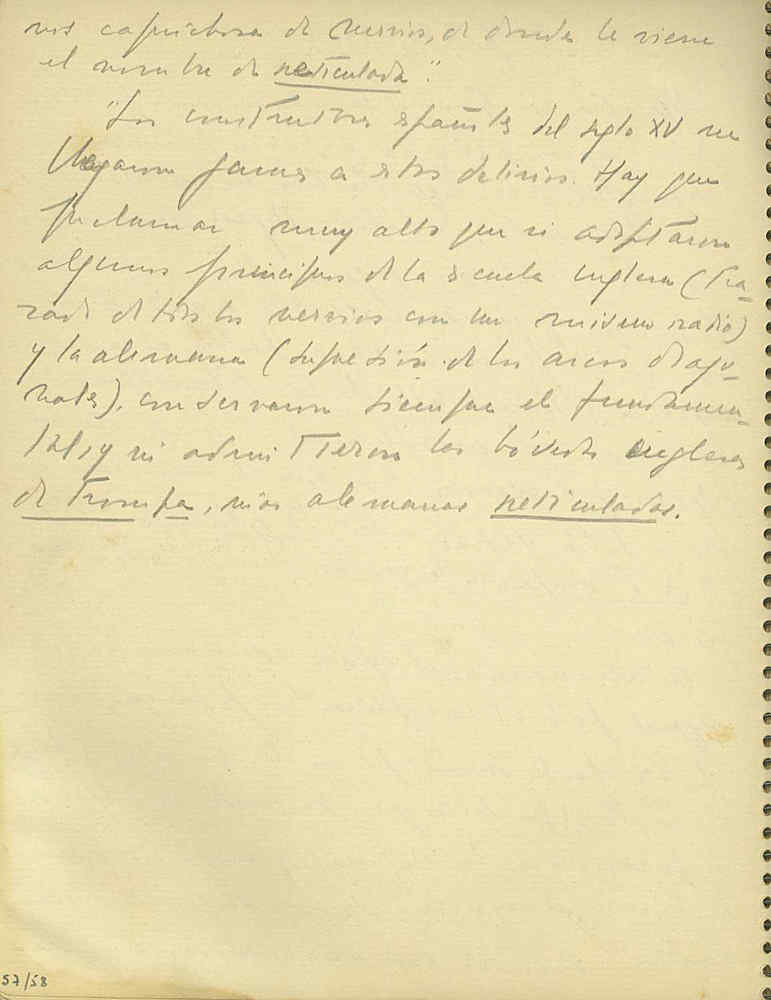 nos caprichosa de nervios, de donde le viene
el nombre de reticulada".
"Los constructores españoles del siglo XV no
llegaron jamas a estos delirios. Hay que
proclamar muy alto que si adoptaron
algunos principios de la escuela inglesa (tra-
zado de todos los nervios con un mismo radio)
y la alemana (supresión de los arcos diago-
nales), conservaron siempre el fundamen-
tal, y ni admitieron las bóvedas inglesas
de trompa, ni las alemanas reticuladas.
57/58